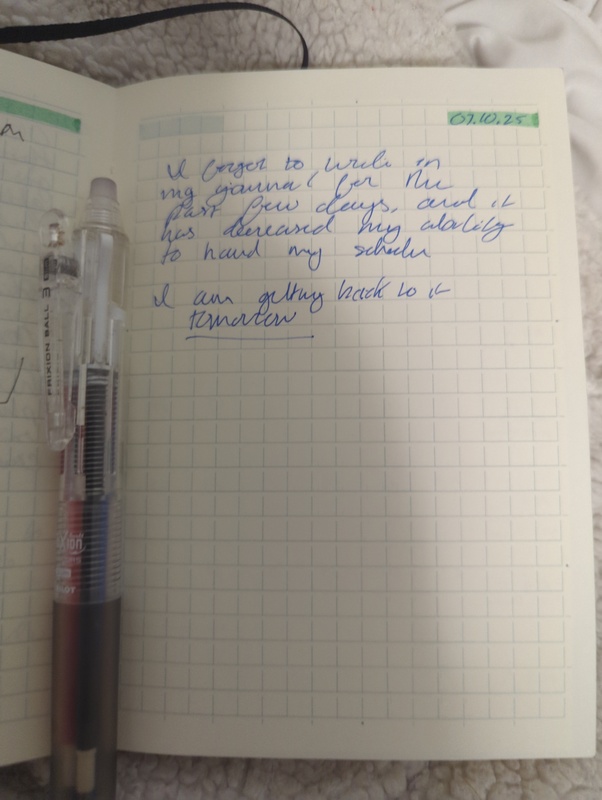 07.10.25
I forgot to write in
my journal for the
past few days, and it
has decreased my ability
to hand my
I am getting back to it
tomorrow
FRIXION BALL 3